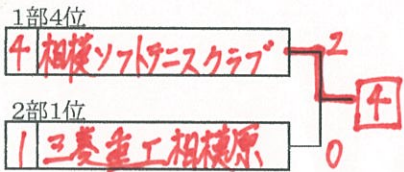 1部4位
4 相模ソフトテニスクラブ 2
4
2部1位
1 三菱重工相模原 0